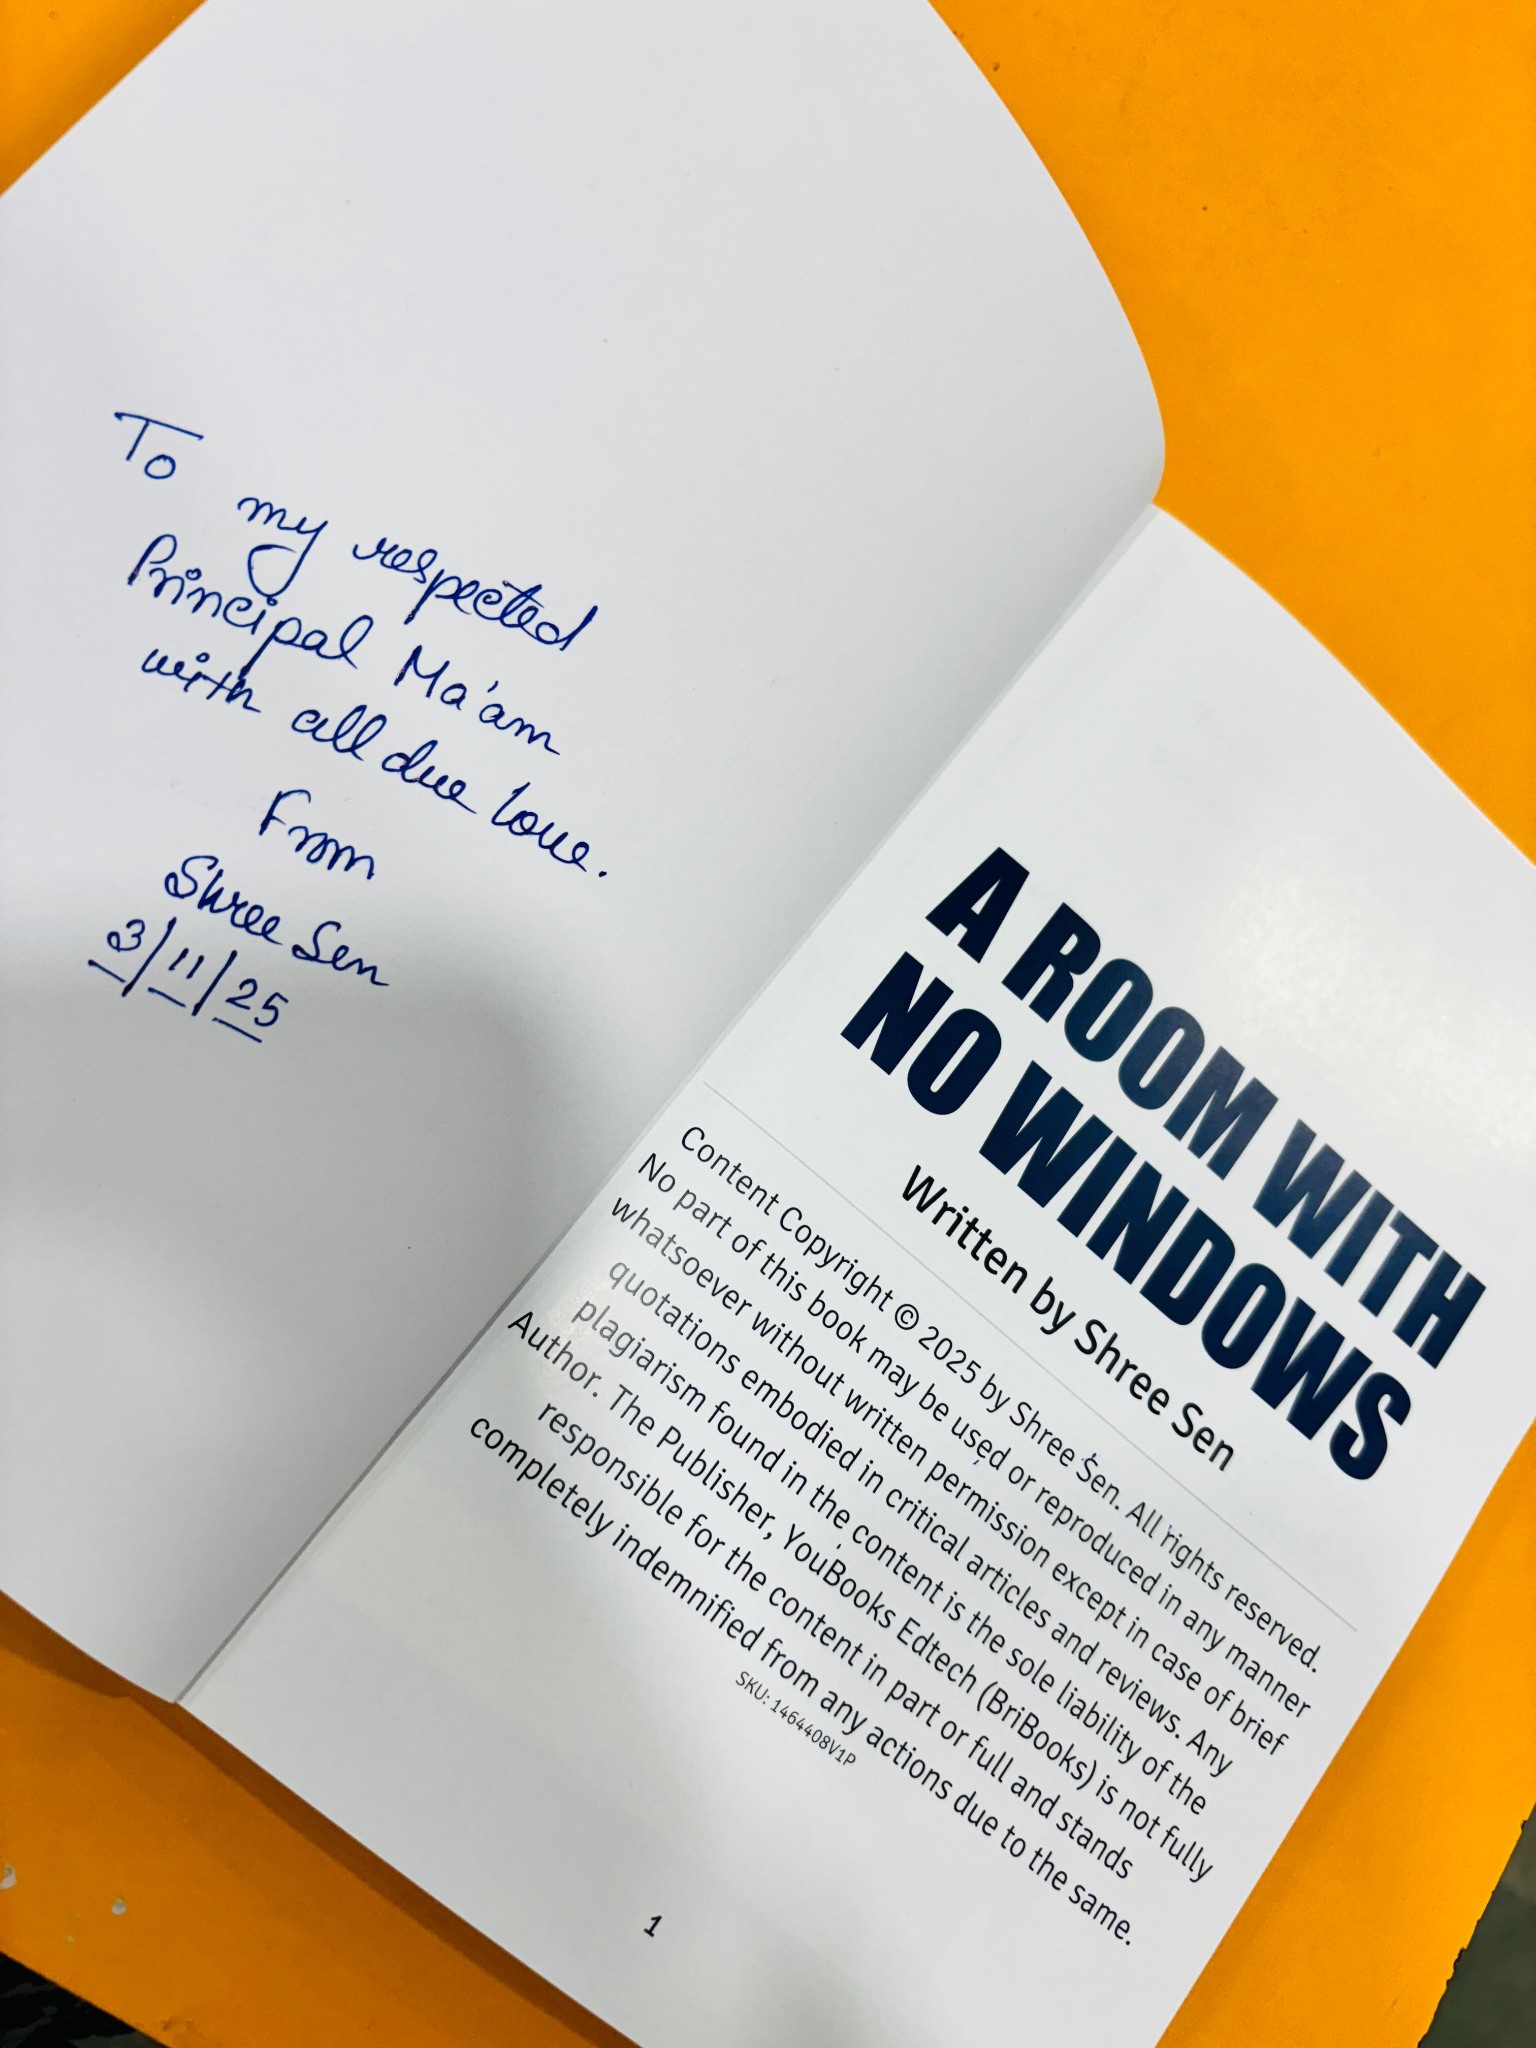 To
my respected
Principal Ma'am
with all due love.
From
Shree Sen
3/11/25
A ROOM WITH
NO WINDOWS
Written by Shree Sen
Content Copyright © 2025 by Shree Sen. All rights reserved.
No part of this book may be used or reproduced in any manner
whatsoever without written permission except in case of brief
quotations embodied in critical articles and reviews. Any
plagiarism found in the content is the sole liability of the
Author. The Publisher, YouBooks Edtech (BriBooks) is not fully
responsible for the content in part or full and stands
completely indemnified from any actions due to the same.
SKU: 1464408V1P
1